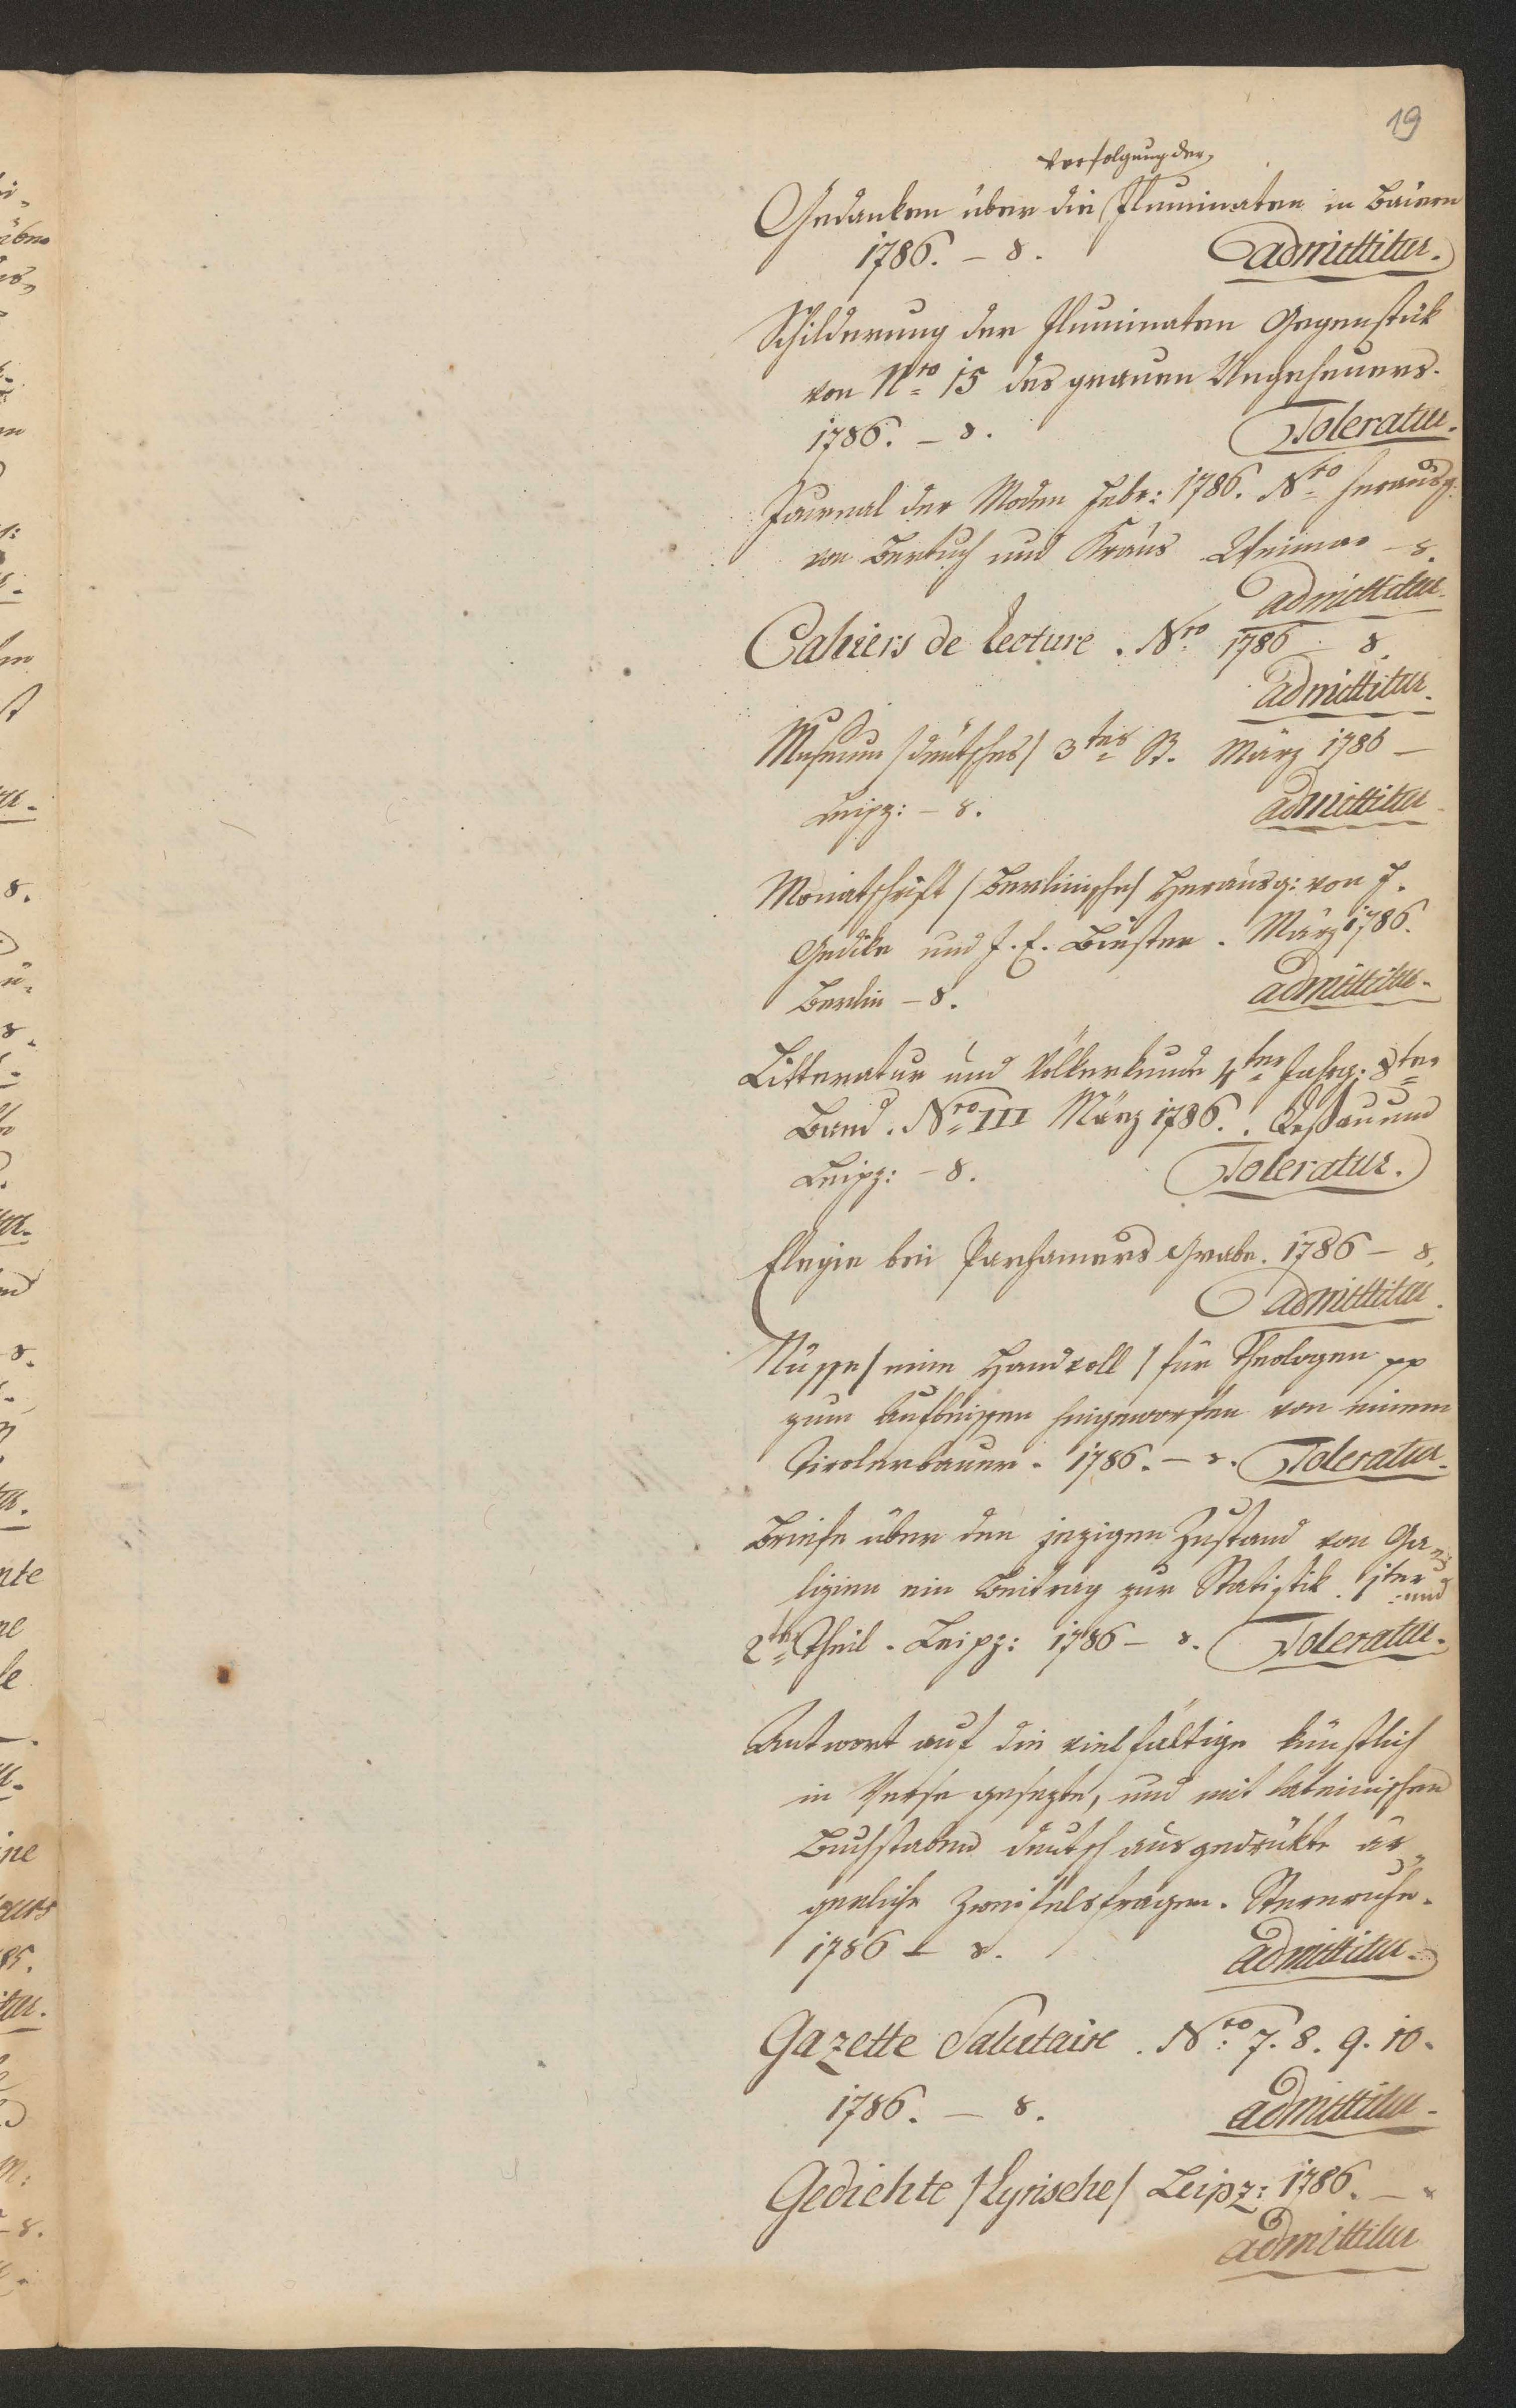 19
Verfolgung der
Gedanken über die Illuminaten in Baiern
1786. – 8. admittitur.
Schilderung der Illuminaten Gegenstük
von Nro 15 des grauen Ungeheuers.
1786. – 8. Toleratur.
Journal der Moden Febr: 1786. Nro herausg:
von Bertuch und Kraus Weimar – 8.
admittitur.
Cahiers de lecture. Nro 1786 – 8.
admittitur.
Museum /deutsches/ 3tes St. März 1786 –
Leipz: – 8. admittitur
Monatschrift /Berlinische/ Herausg: von F.
Gedike und J. E. Biester. März 1786.
Berlin – 8. admittitur.
Litteratur und Völkerkunde 4ter Jahrg: 8ter
Band. Nro III März 1786. Deßau und
Leipz: – 8. Toleratur.
Elegie bei Parhamers Grabe. 1786 – 8.
admittitur.
Nüsse /eine Handvoll/ für Theologen pp
zum Aufbeissen hingeworfen von einem
Tirolerbauer. 1786. – 8. Toleratur.
Briefe über den jezigen Zustand von Ga=
lizien ein Beitrag zur Statistik. 1ter und
2ter Theil. Leipz: 1786 – 8. Toleratur.
Antwort auf die vielfältige künstlich
in Verse gesezte, und mit lateinischen
Buchstaben deutsch ausgedrükte är=
gerliche Zweifelsfragen.
1786 – 8. admittitur.
Gazette Salutaire. Nro: 7. 8. 9. 10.
1786. – 8. admittitur.
Gedichte /Lyrische/ Leipz: 1786. –
admittitur